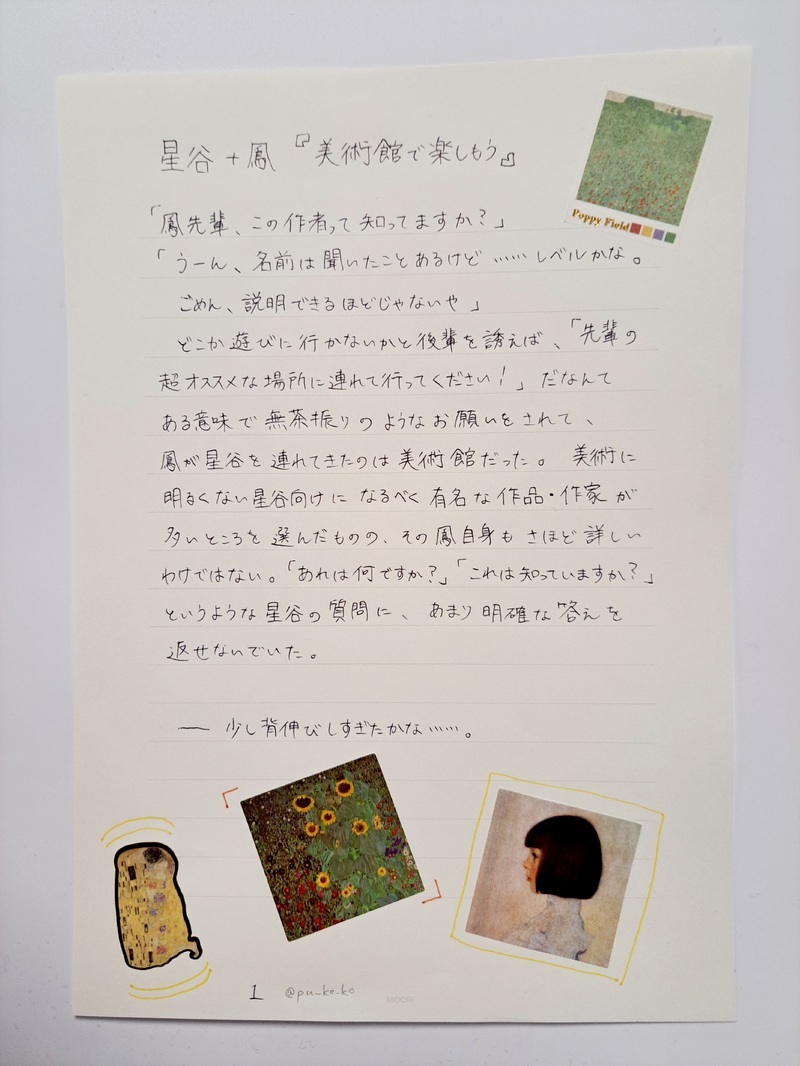 星谷+鳳『美術館で楽しもう』
Poppy Field
「鳳先輩、この作者って知ってますか？」
「うーん、名前は聞いたことあるけど……レベルかな。
ごめん、説明できるほどじゃないや」
どこか遊びに行かないかと後輩を誘えば、「先輩の
超オススメな場所に連れて行ってください！」だなんて
ある意味で無茶振りのようなお願いをされて、
鳳が星谷を連れてきたのは美術館だった。美術に
明るくない星谷向けになるべく有名な作品・作家が
多いところを選んだものの、その鳳自身もさほど詳しい
わけではない。「あれは何ですか？」「これは知っていますか？」
というような星谷の質問に、あまり明確な答えを
返せないでいた。
── 少し背伸びしすぎたかな……。
1 @pu_ko_ko
MIDORI